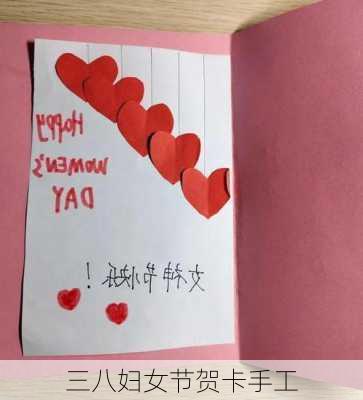 Happy
WOMEN'S
DAY
女神节快乐！
三八妇女节贺卡手工